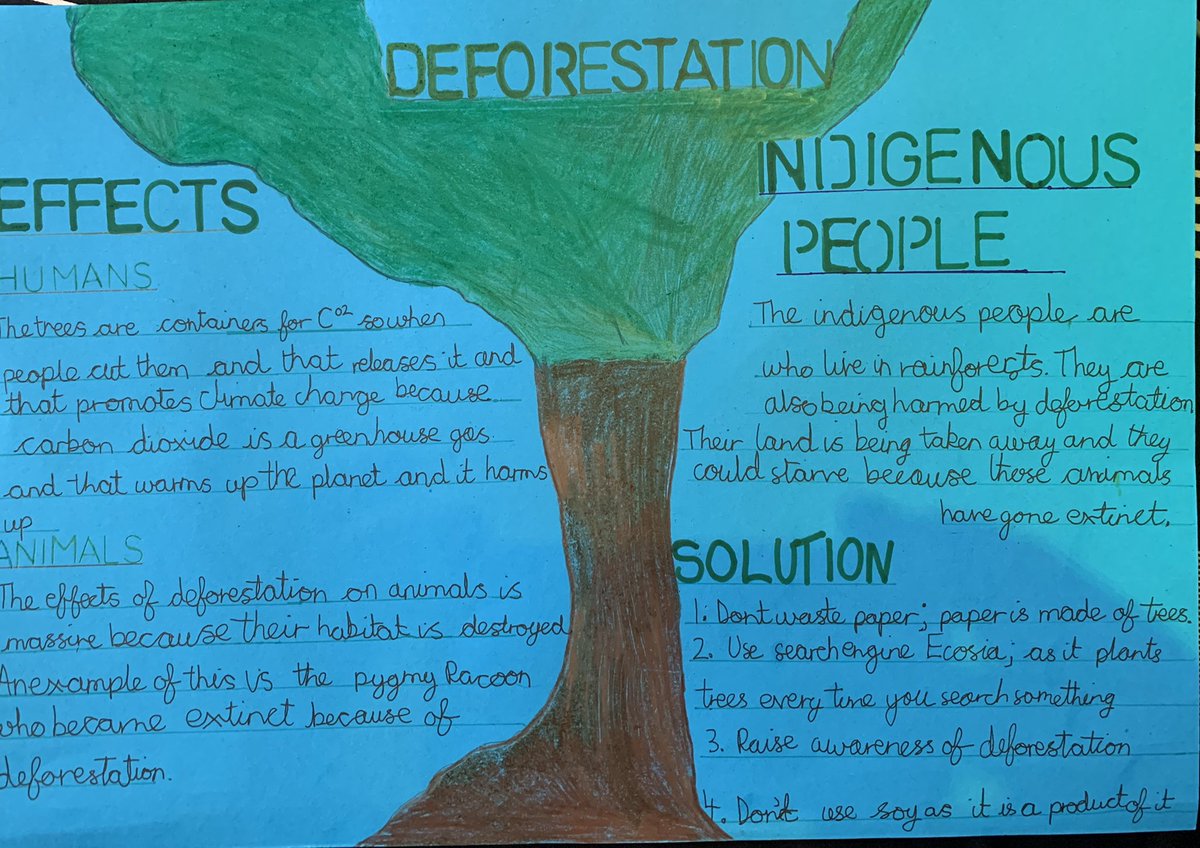 DEFORESTATION
EFFECTS
HUMANS
The trees are containers for C02 so when
people cut them and that releases it and
that promotes climate change because
carbon dioxide is a greenhouse gas
and that warms up the planet and it harms
up
ANIMALS
The effects of deforestation on animals is
massive because their habitat is destroyed
An example of this is the pygmy Racoon
who became extinct because of
deforestation.
INDIGENOUS
PEOPLE
The indigenous people are
who live in rainforests. They are
also being harmed by deforestation
Their land is being taken away and they
could starve because those animals
have gone extinct.
SOLUTION
1. Dont waste paper; paper is made of trees.
2. Use search engine Ecosia; as it plants
trees every time you search something
3. Raise awareness of deforestation
4. Don't use soy as it is a product of it